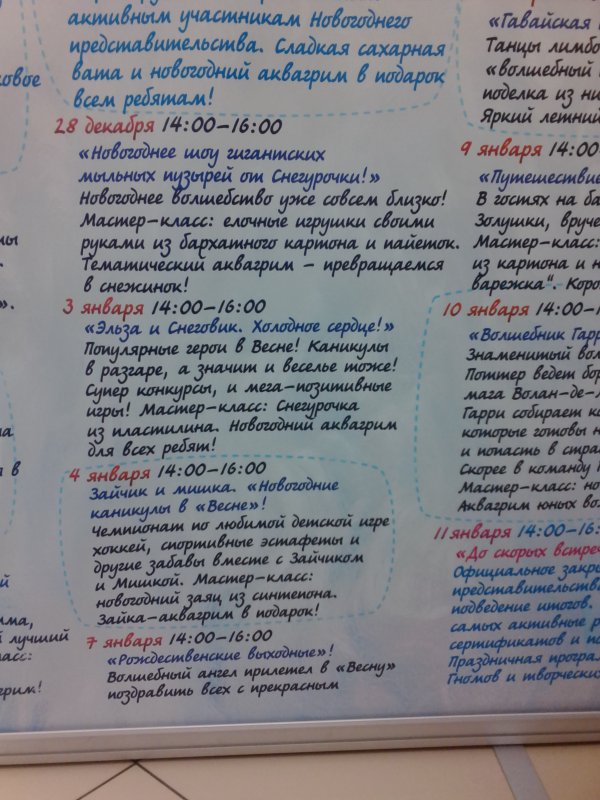 активным участникам Новогоднего
представительства. Сладкая сахарная
вата и новогодний аквагрим в подарок
всем ребятам!
28 декабря 14:00-16:00
«Новогоднее шоу гигантских
мыльных пузырей от Снегурочки!»
Новогоднее волшебство уже совсем близко!
Мастер-класс: елочные игрушки своими
руками из бархатного картона и пайеток.
Тематический аквагрим – превращаемся
в снежинок!
3 января 14:00-16:00
«Эльза и Снеговик. Холодное сердце!»
Популярные герои в Весне! Каникулы
в разгаре, а значит и веселье тоже!
Супер конкурсы, и мега-позитивные
игры! Мастер-класс: Снегурочка
из пластилина. Новогодний аквагрим
для всех ребят!
4 января 14:00-16:00
Зайчик и мишка. «Новогодние
каникулы в «Весне»!
Чемпионат по любимой детской игре
хоккей, спортивные эстафеты и
другие забавы вместе с Зайчиком
и Мишкой. Мастер-класс:
новогодний заяц из синтепона.
Зайка-аквагрим в подарок!
7 января 14:00-16:00
«Рождественские выходные»!
Волшебный ангел прилетел в «Весну»
поздравить всех с прекрасным
«Гавайская
Танцы лимбо
«волшебный
поделка из
Яркий летний
9 января 14:00
«Путешествие
В гостях на
Золушки,
Мастер-класс:
из картона и
варежка“.
10 января 14:00-1
«Волшебник
Знаменитый
Поттер ведет
мага Волан-де-
Гарри собирает
которые готовы
и попасть в
Скорее в команду
Мастер-класс:
Аквагрим юных
11 января 14:00-16:
«До скорых
Официальное
представительства
подведение итогов.
самых активные
сертификатов и
Праздничная
Гномов и